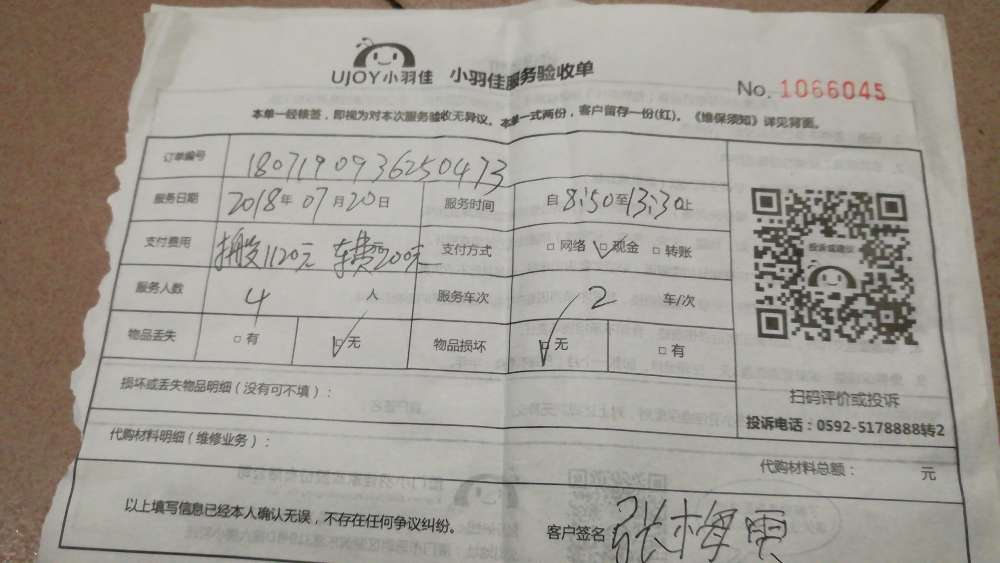 UJOY小羽佳 小羽佳服务验收单
No. 1066045
本单一经核签，即视为对本次服务验收无异议。本单一式两份，客户留存一份(红)。《维保须知》详见背面。
订单编号 1807190936250473
服务日期 2018年07月20日 服务时间 自8:50至13:30止
支付费用 搬费1120元 车费200元 支付方式 □网络 ☑现金 □转账
服务人数 4人 服务车次 2车/次
物品丢失 □有 ☑无 物品损坏 ☑无 □有
投诉或建议
扫码评价或投诉
投诉电话：0592-5178888转2
损坏或丢失物品明细（没有可不填）：
代购材料明细（维修业务）：
代购材料总额： 元
以上填写信息已经本人确认无误，不存在任何争议纠纷。
客户签名 张梅